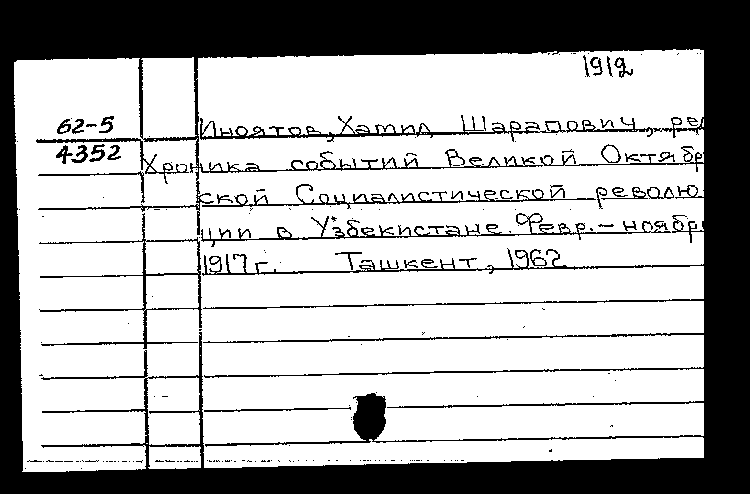 1912
62-5 Иноятов, Хамид Шарапович, ред
4352 Хроника событий Великой Октябр
ской Социалистической револю
ции в Узбекистане. Февр. – ноябрь
1917 г. Ташкент, 1962